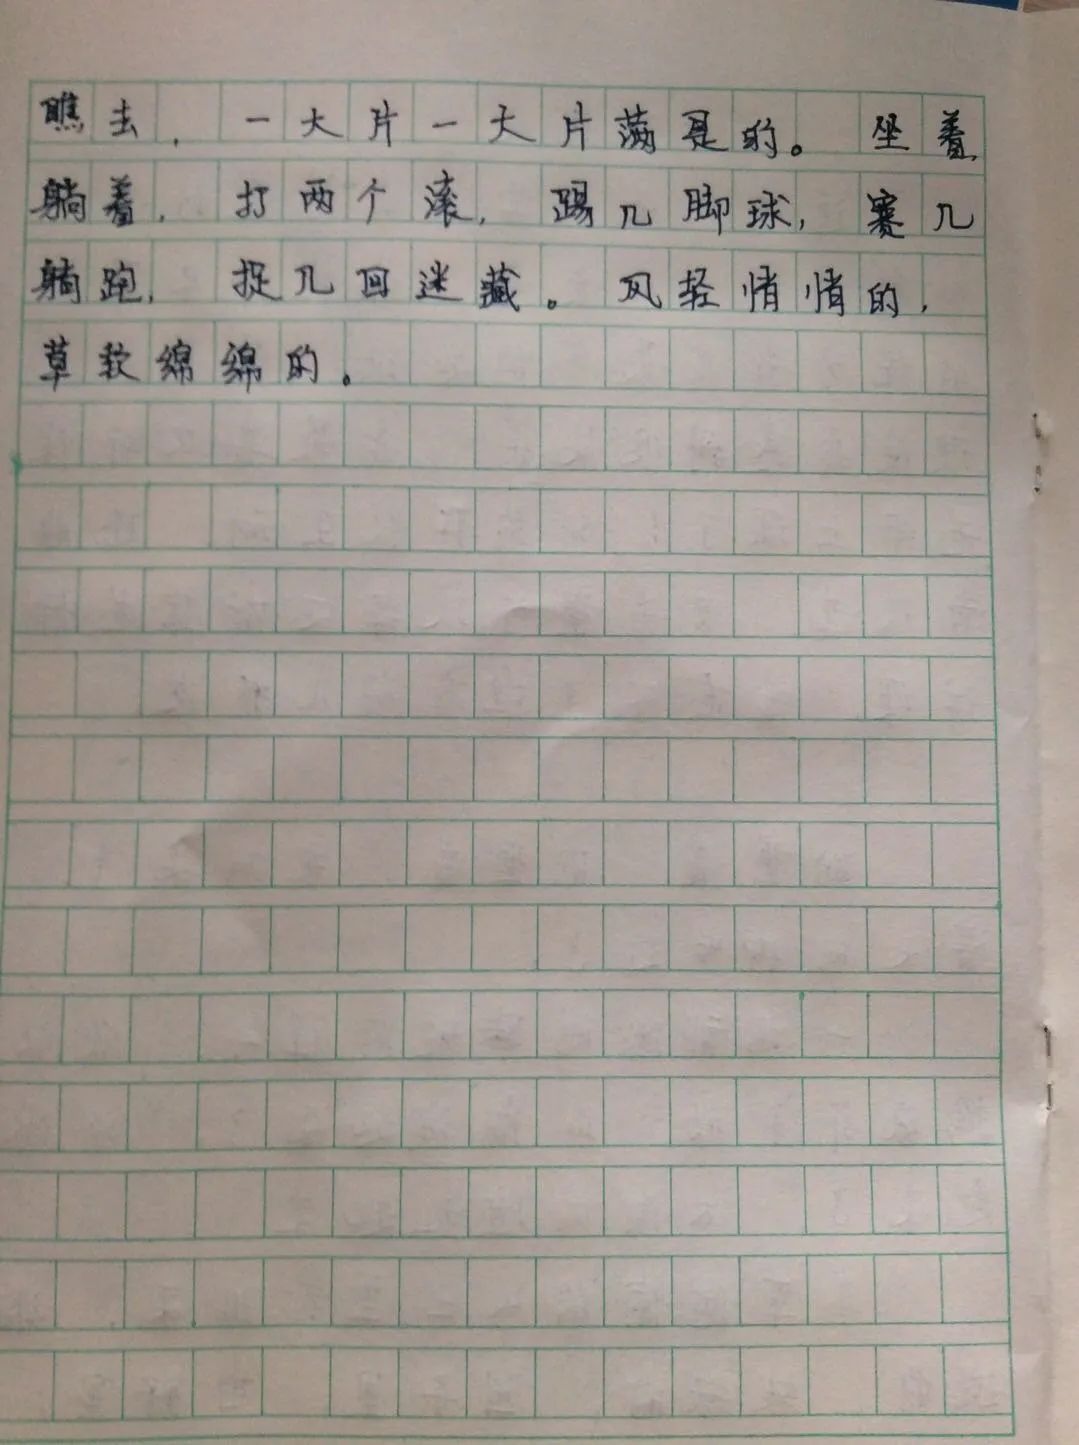 瞧去，一大片一大片满是的。坐着，
躺着，打两个滚，踢几脚球，赛几
躺跑，捉几回迷藏。风轻悄悄的，
草软绵绵的。